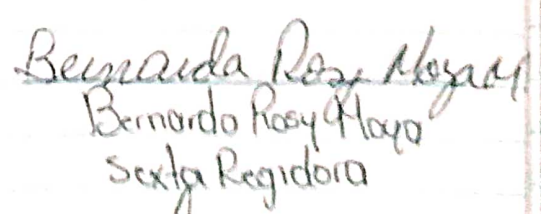 Bernarda Rosy Moya M.
Bernarda Rosy Moya
Sexta Regidora